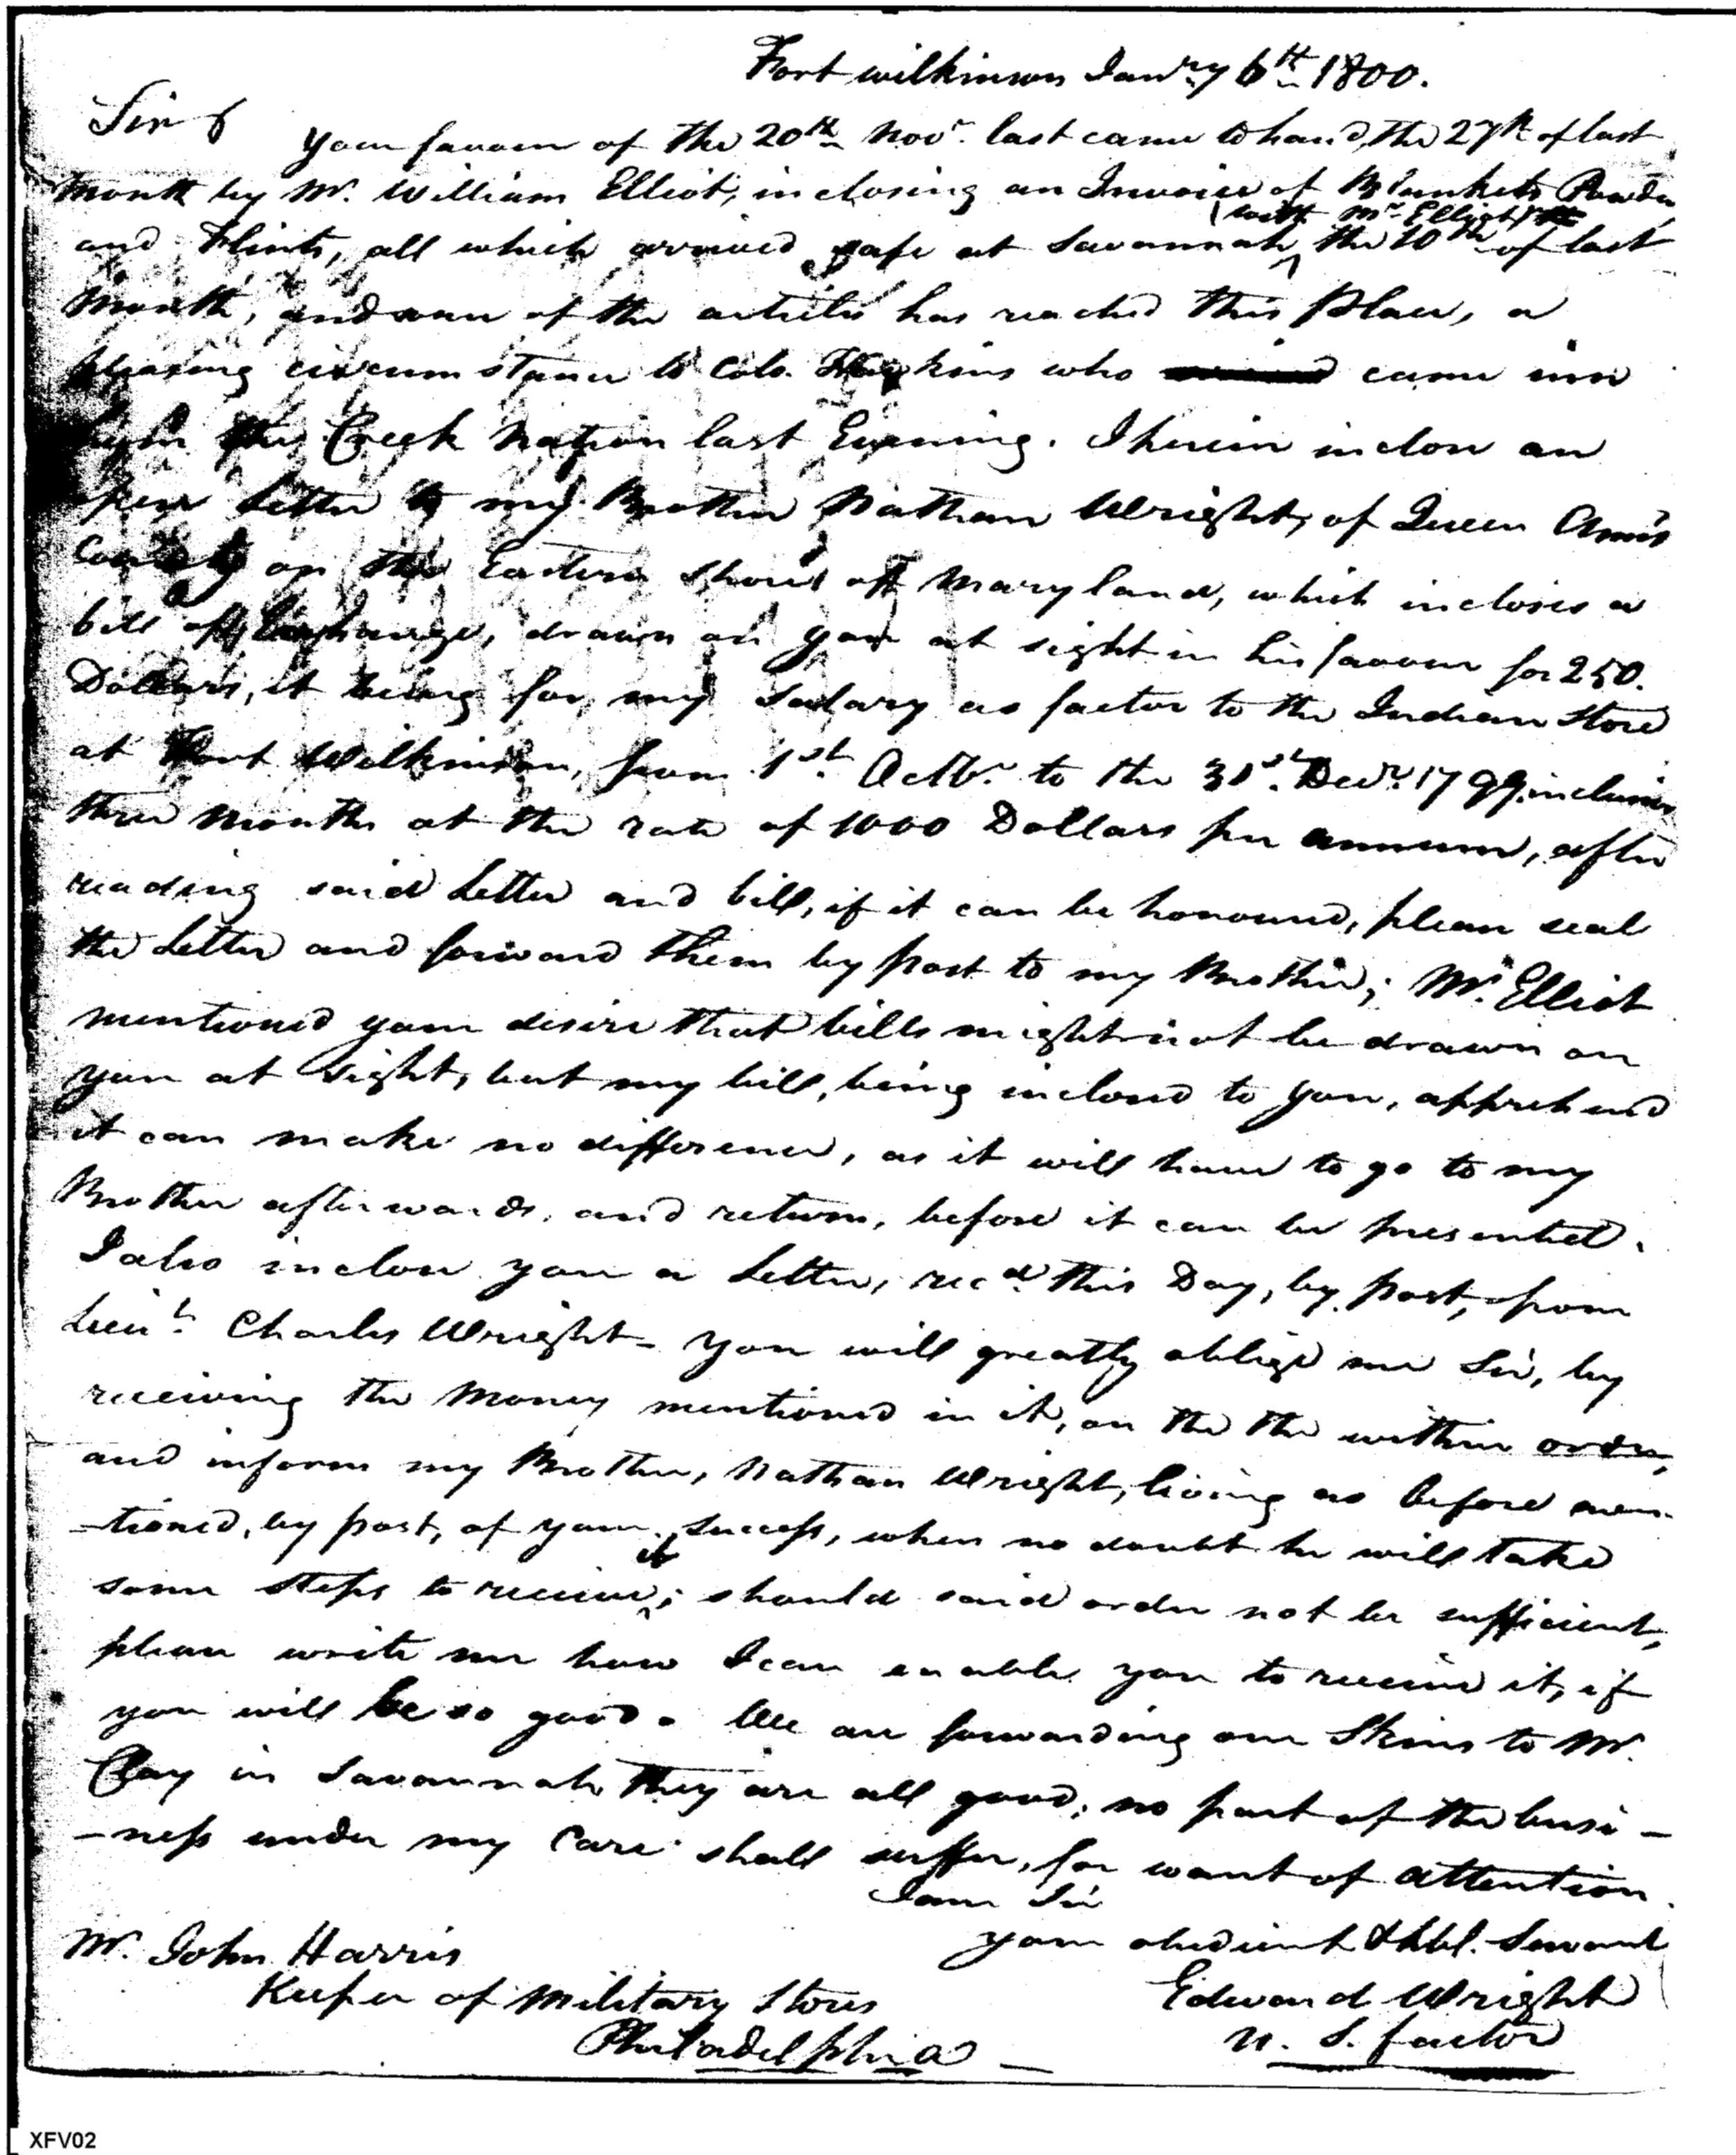 Fort wilkinson Janry 6th 1800.
Sir
your favour of the 20th Novr. last came to hand, the 27th of last
month by Mr. William Elliot, inclosing an Invoice of Blankets Powder,
(with Mr. Elliot)
and Flints, all which arrived safe at Savannah the 10th of last
Month, and of the articles has reached this place, a
pleasing circumstance to Colo. Hawkins who came inn
from the Creek Nation last Evening. I herein inclose an
open Letter to my Brother Nathan Wright, of Queen Ann's
County on the Eastern Shore of Maryland, which incloses a
bill of Exchange, drawn on you at sight in his favour for 250.
Dollars, it being for my Salary as factor to the Indian Store
at Fort Wilkinson, from 1st. Octbr. to the 31st. Decr. 1799. inclusive
three Months at the rate of 1000 Dollars per annum, after
reading said Letter and bill, if it can be honoured, please seal
the Letter and forward them by post to my Brother; Mr. Elliot
mentioned your desire that bills might not be drawn on
you at sight, but my bill, being inclosed to you, apprehend
it can make no difference, as it will have to go to my
Brother afterwards, and return, before it can be presented.
I also inclose you a Letter, recd. this Day, by post, from
Lieut. Charles Wright - you will greatly oblige me Sir, by
receiving the Money mentioned in it, on the the within order,
and inform my Brother, Nathan Wright, living as before men-
-tioned, by post, of your success, when no doubt he will take
it
some steps to receive; should said order not be sufficient,
please write me how I can enable you to receive it, if
you will be so good. We are forwarding our Skins to Mr.
Clay in Savannah they are all good; no part of the busi-
-ness under my Care shall suffer, for want of attention.
I am Sir
your obedient & hbl. Servant
Mr. John Harris
Edward Wright
Keeper of Military Stores
U. S. factor
Philadelphia
XFV02